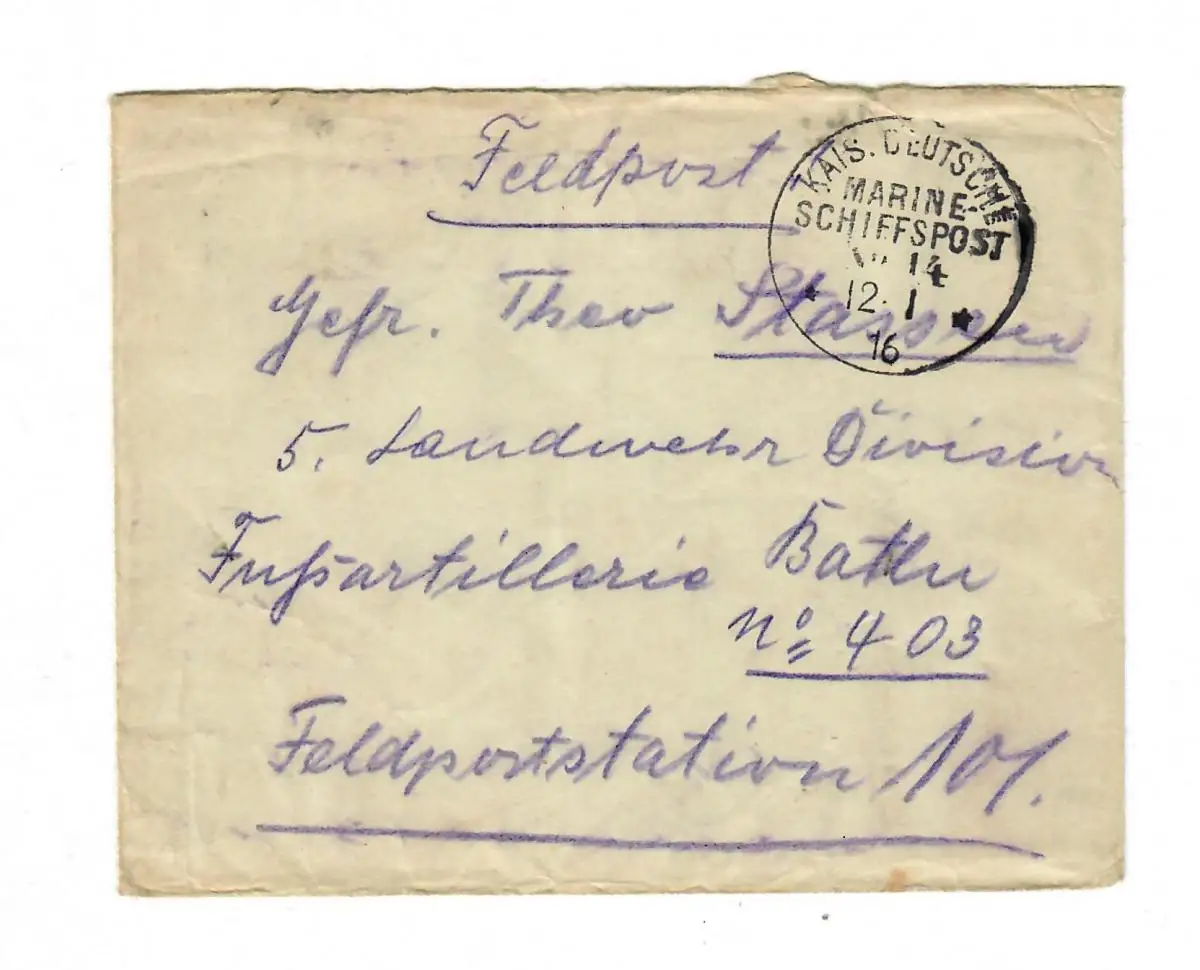 Feldpost
KAIS. DEUTSCHE
MARINE-
SCHIFFSPOST
No 14
* 12. 1 *
16
Gefr. Theo Stassen
5. Landwehr Division
Fußartillerie Battr
No 403
Feldpoststation 101.